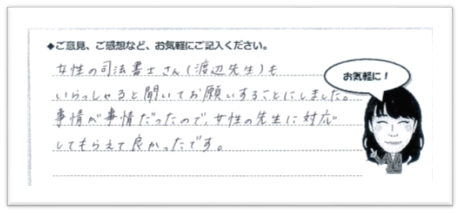 ◆ご意見、ご感想など、お気軽にご記入ください。
女性の司法書士さん(渡辺先生)も
いらっしゃると聞いてお願いすることにしました。
事情が事情だったので、女性の先生に対応
してもらえて良かったです。
お気軽に!